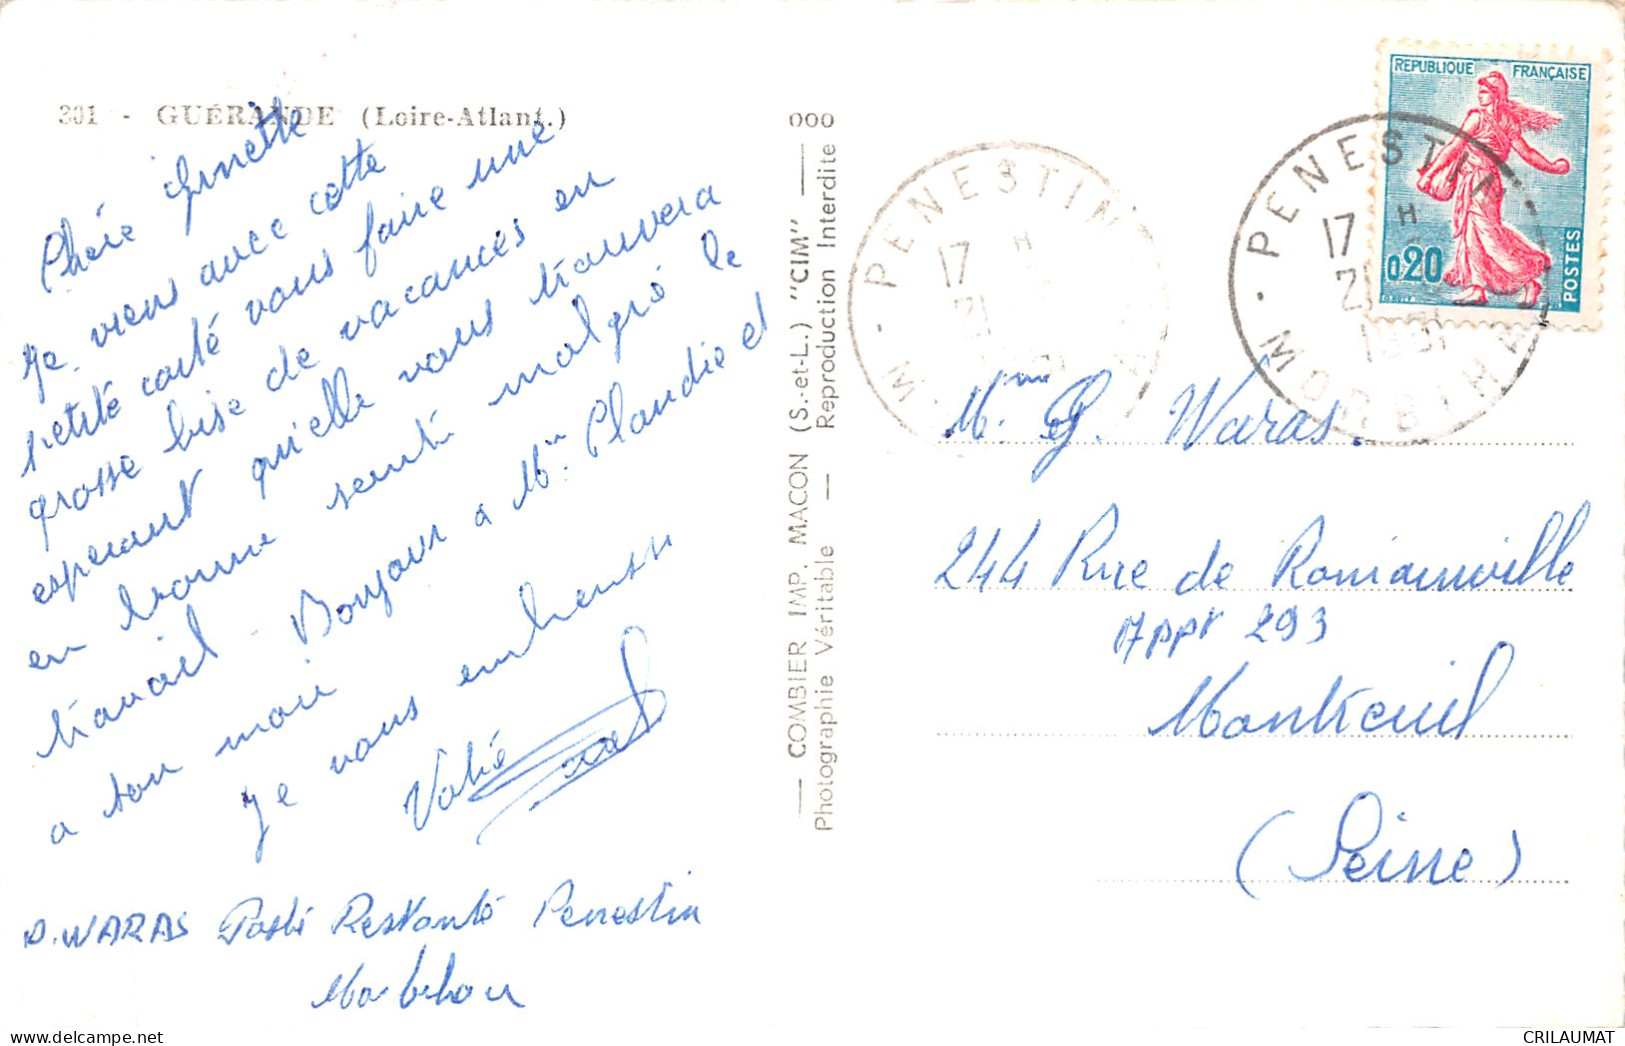 301 - GUÉRANDE (Loire-Atlant.)
Chère Ginette
Je viens avec cette
petite carte vous faire une
grosse bise de vacances en
esperant qu'elle vous trouvera
en bonne santé malgré le
travail - Bonjour a Mme Claudie et
a ton mari
Je vous embrasse
Votre
D. WARAS Poste Restante Penestin
Morbihan
000
— COMBIER IMP. MACON (S.-et-L.) "CIM" —
Photographie Véritable — Reproduction Interdite
PENESTIN
17 H
21
MORBIHAN
PENESTIN
17 H
M
REPUBLIQUE FRANÇAISE
0,20
POSTES
Mme G. Waras.
244 Rue de Romainville
Appt 293
Montreuil
(Seine)
CRILAUMAT